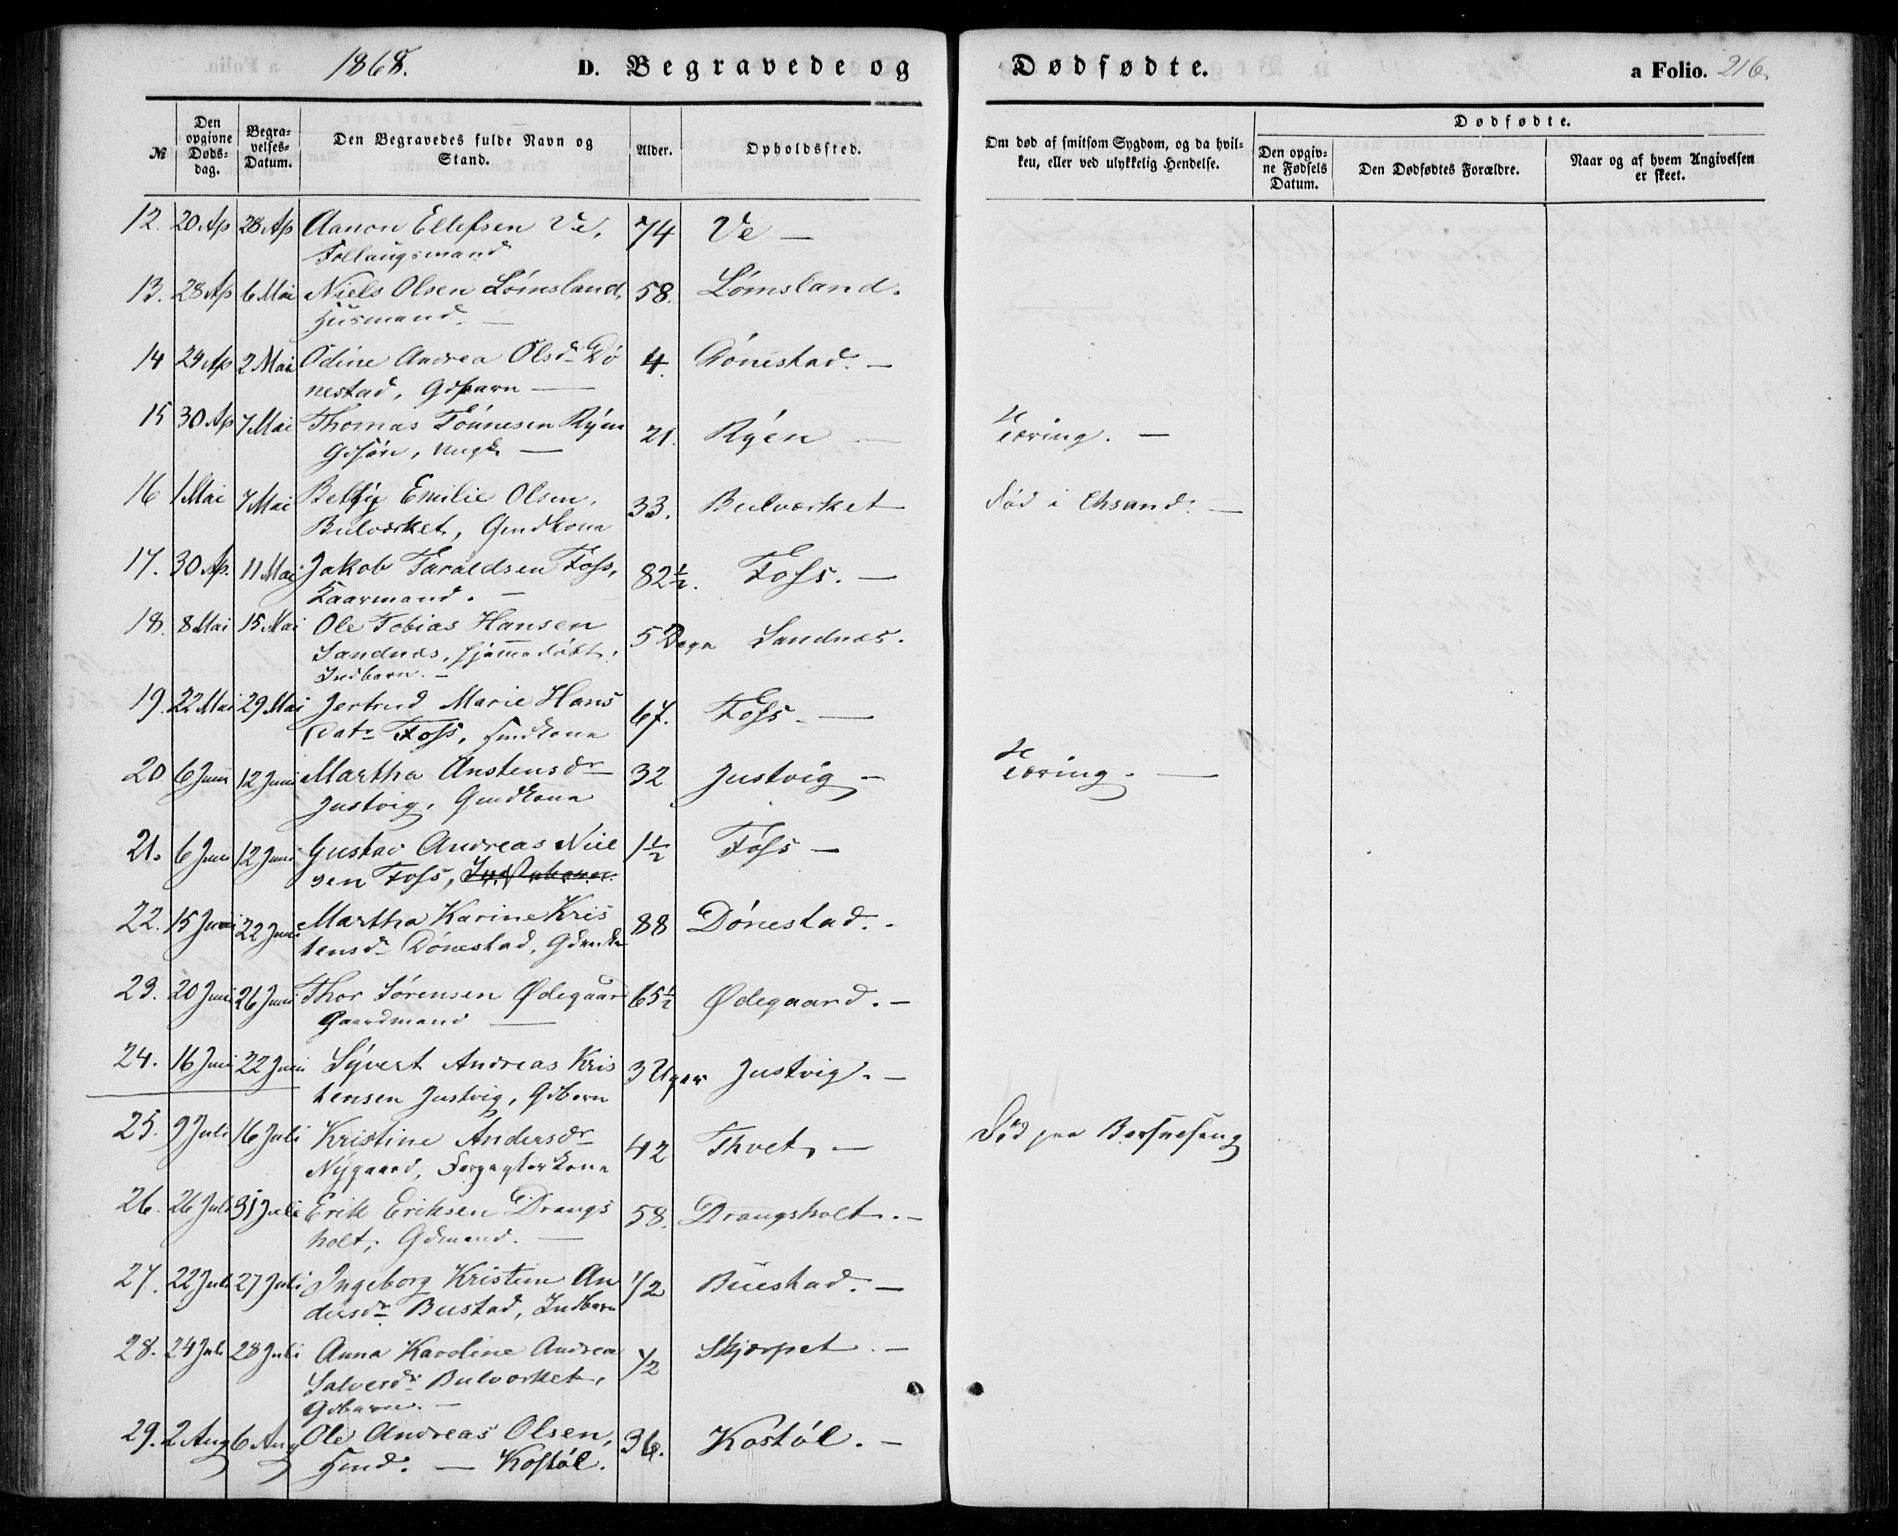 1868.
D. Begravede og Dødfødte.
a Folio. 216.
№
Den opgivne Døds-dag.
Begra-velses-Datum.
Den Begravedes fulde Navn og Stand.
Alder.
Opholdssted.
Om død af smitsom Sygdom, og da hvil-ken, eller ved ulykkelig Hendelse.
Dødfødte.
Den opgiv-ne Fødsels Datum.
Den Dødfødtes Forældre.
Naar og af hvem Angivelsen er skeet.
12. 20 Ap 28 Ap Aanon Ellefsen Ve, 74 Ve —
Follaugsmand
13. 28 Ap 6 Mai Niels Olsen Lømsland, 58. Lømsland.
Husmand. —
14 24 Ap 2 Mai Odine Andrea Olsdr Dø 4. Dønestad. —
nestad, Gdbarn —
15 30 Ap 7 Mai Thomas Tønnesen Ryen 21. Ryen — Tæring. —
Gdsøn, Ungk. —
16 1 Mai 7 Mai Betsy Emilie Olsen, 33. Bulværket Død i Chsand. —
Bulværket, Gmdkona
17. 30 Ap. 11 Mai Jakob Taraldsen Foss, 82½. Foss. —
Kaarmand. —
18. 8 Mai 15 Mai Ole Tobias Hansen 5 Dage Sandnæs.
Sandnæs, hjemmedøbt.
Indbarn. —
19. 22 Mai 29 Mai Jertrud Marie Hans 67. Foss. —
Datr Foss, Hmdkona
20 6 Juni 12 Juni Martha Anstensdr 32 Justvig — Tæring. —
Justvig, Gmdkona
21. 6 Juni 12 Juni Gustav Andreas Niel 1½ Foss —
sen Foss,
22. 15 Juni 22 Juni Martha Karine Kris 88 Dønestad. —
tensdr Dønestad, Gdenke
23. 20 Juni 26 Juni Thor Sørensen Ødegaard 65½ Ødegaard. —
Gaardmand —
24. 16 Juni 22 Juni Syvert Andreas Kris 3 Uger Justvig. —
tensen Justvig, Gdbarn
25. 9 Juli 16 Juli Kristine Andersdr 42 Thvet, — Død paa Barselseng
Nygaard, Forpagterkona
26. 26 Juli 31 Juli Erik Eriksen Drangs 58. Drangsholt. —
holt, Gdmand. —
27. 22 Juli 27 Juli Ingeborg Kristine An 1/2 Buestad. —
dersdr Bustad, Indbarn
28. 24 Juli 28 Juli Anna Karoline Andrea 1/2 Skjærpet. —
Salvesdr Bulværket,
Gdbarn. —
29. 2 Aug 6 Aug Ole Andreas Olsen, 36. Kostøl. —
Hmd. — Kostøl.